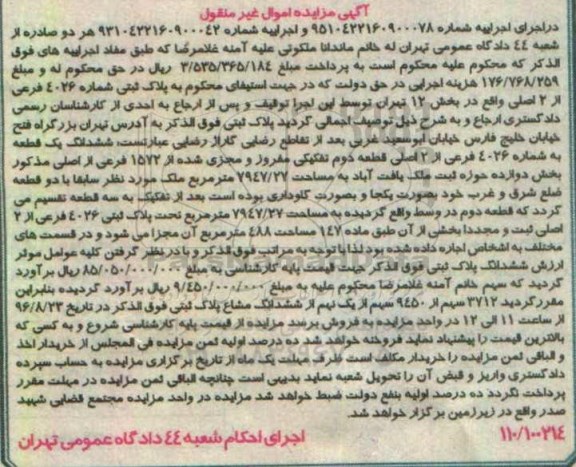 آگهی مزایده اموال غیر منقول
دراجرای اجراییه شماره ۹۵۱۰۴۲۲۱۶۰۹۰۰۰۷۸ و اجراییه شماره ۹۳۱۰۴۲۲۱۶۰۹۰۰۰۴۲ هر دو صادره از
شعبه ۴۴ دادگاه عمومی تهران له خانم ماندانا ملکوتی علیه آمنه غلامرضا که طبق مفاد اجراییه های فوق
الذکر که محکوم علیه محکوم است به پرداخت مبلغ ۳/۵۳۵/۳۶۵/۱۸۴ ریال در حق محکوم له و مبلغ
۱۷۶/۷۶۸/۲۵۹ هزینه اجرایی در حق دولت که در جهت استیفای محکوم به پلاک ثبتی شماره ۴۰۲۶ فرعی
از ۲ اصلی واقع در بخش ۱۲ تهران توسط این اجرا توقیف و پس از ارجاع به احدی از کارشناسان رسمی
دادگستری ارجاع و به شرح ذیل توصیف اجمالی گردید پلاک ثبتی فوق الذکر به آدرس تهران بزرگراه فتح
خیابان خلیج فارس خیابان ابوسعید غربی بعد از تقاطع رضایی گاراژ رضایی عبارتست: ششدانگ یک قطعه
به شماره ۴۰۲۶ فرعی از ۲ اصلی قطعه دوم تفکیکی مفروز و مجزی شده از ۱۵۷۲ فرعی از اصلی مذکور
بخش دوازده حوزه ثبت ملک یافت آباد به مساحت ۷۹۴۷/۲۷ مترمربع ملک مورد نظر سابقا با دو قطعه
ضلع شرق و غرب خود بصورت یکجا و بصورت گاوداری بوده است بعد از تفکیک به سه قطعه تقسیم می
گردد که قطعه دوم در وسط واقع گردیده به مساحت ۷۹۴۷/۲۷ مترمربع تحت پلاک ثبتی ۴۰۲۶ فرعی از ۲
اصلی ثبت و مجددا بخشی از آن طبق ماده ۱۴۷ مساحت ۴۸۸ مترمربع آن مجزا می شود و در قسمت های
مختلف به اشخاص اجاره داده شده بود لذا با توجه به مراتب فوق الذکر و با در نظر گرفتن کلیه عوامل موثر
ارزش ششدانگ پلاک ثبتی فوق الذکر جهت قیمت پایه کارشناسی به مبلغ ۸۵/۰۵۰/۰۰۰/۰۰۰ ریال برآورد
گردید که سهم خانم آمنه غلامرضا محکوم علیه به مبلغ ۹/۴۵۰/۰۰۰/۰۰۰ ریال برآورد گردیده بنابراین
مقرر گردید ۳۷۱۲ سهم از ۹۴۵۰ سهم از یک نهم از ششدانگ مشاع پلاک ثبتی فوق الذکر در تاریخ ۹۶/۸/۲۳
از ساعت ۱۱ الی ۱۲ در واحد مزایده به فروش برسد مزایده از قیمت پایه کارشناسی شروع و به کسی که
بالاترین قیمت را پیشنهاد نماید فروخته خواهد شد ده درصد اولیه ثمن مزایده فی المجلس از خریدار اخذ
و الباقی ثمن مزایده را خریدار مکلف است ظرف مهلت یک ماه از تاریخ برگزاری مزایده به حساب سپرده
دادگستری واریز و قبض آن را تحویل شعبه نماید بدیهی است چنانچه الباقی ثمن مزایده در مهلت مقرر
پرداخت نگردد ده درصد اولیه بنفع دولت ضبط خواهد شد مزایده در واحد مزایده مجتمع قضایی شهید
صدر واقع در زیرزمین برگزار خواهد شد.
۱۱۰/۱۰۰۲۱۴ اجرای احکام شعبه ۴۴ دادگاه عمومی تهران